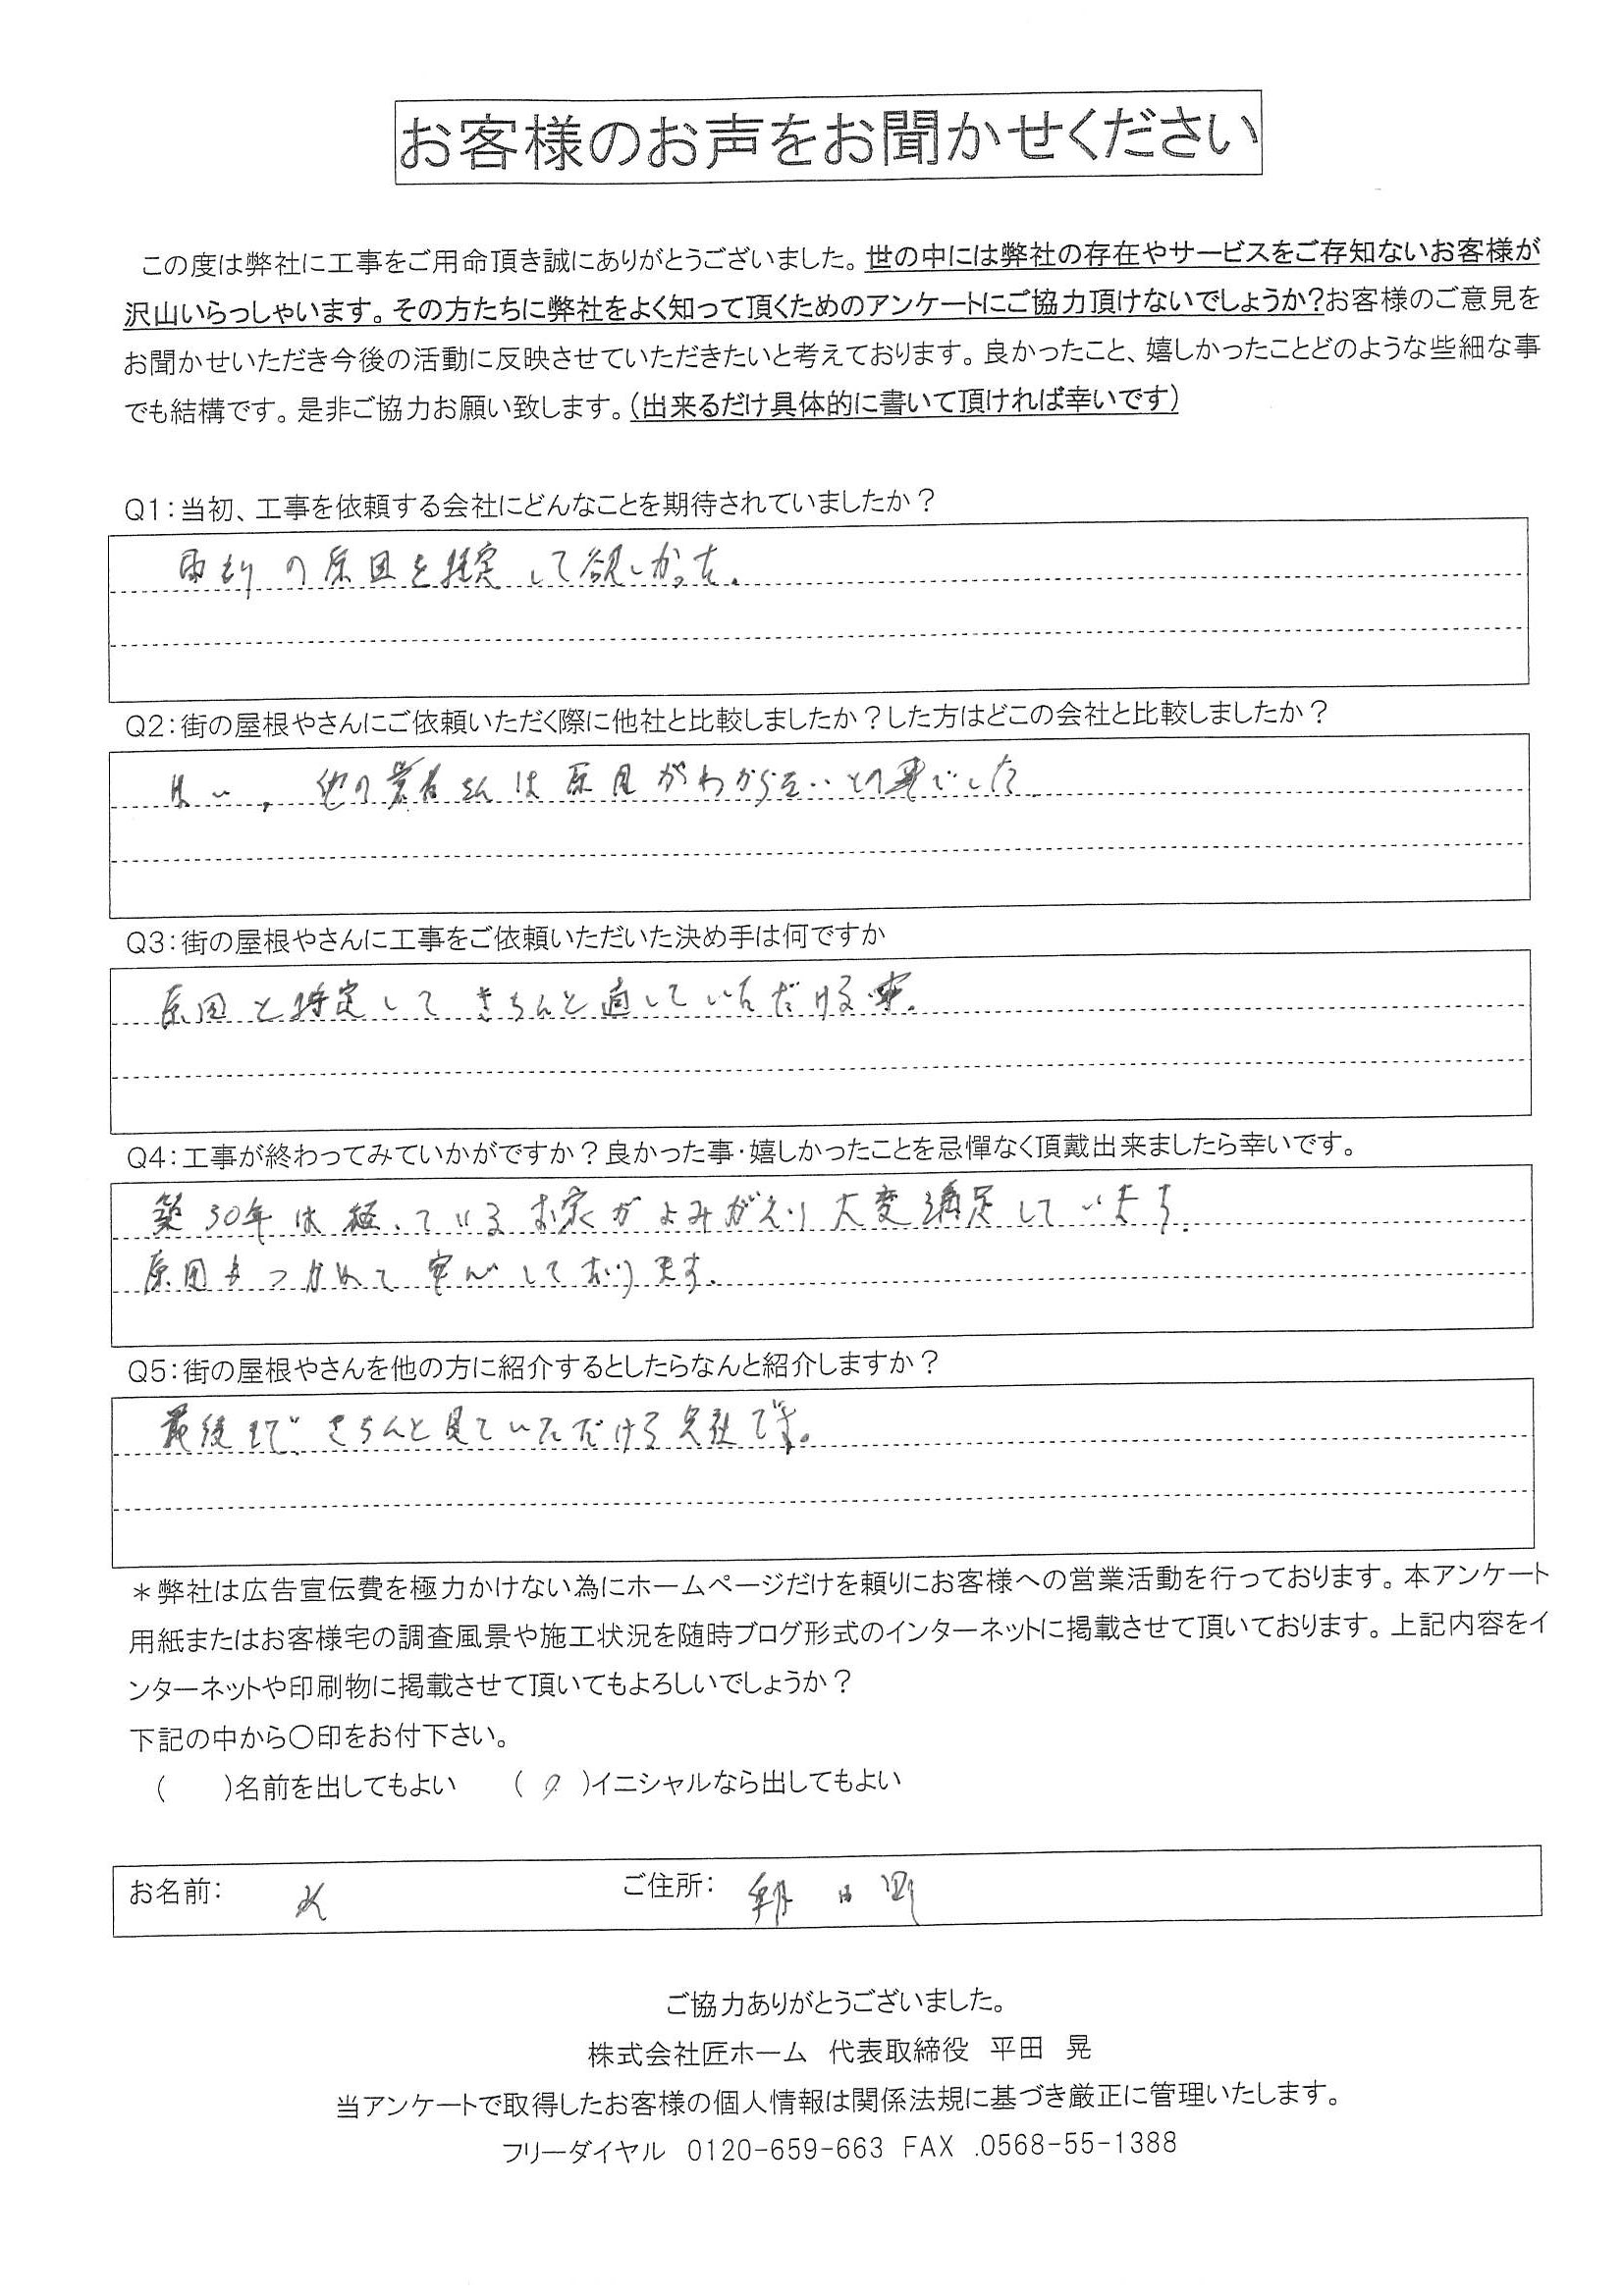 お客様のお声をお聞かせください
この度は弊社に工事をご用命頂き誠にありがとうございました。世の中には弊社の存在やサービスをご存知ないお客様が
沢山いらっしゃいます。その方たちに弊社をよく知って頂くためのアンケートにご協力頂けないでしょうか?お客様のご意見を
お聞かせいただき今後の活動に反映させていただきたいと考えております。良かったこと、嬉しかったことどのような些細な事
でも結構です。是非ご協力お願い致します。(出来るだけ具体的に書いて頂ければ幸いです)
Q1:当初、工事を依頼する会社にどんなことを期待されていましたか?
雨もりの原因を推定して欲しかった。
Q2:街の屋根やさんにご依頼いただく際に他社と比較しましたか?した方はどこの会社と比較しましたか?
はい、他の業者さんは原因がわからないとの事でした
Q3:街の屋根やさんに工事をご依頼いただいた決め手は何ですか
原因を特定してきちんと直していただける事。
Q4:工事が終わってみていかがですか?良かった事・嬉しかったことを忌憚なく頂戴出来ましたら幸いです。
築30年は経っているお家がよみがえり大変満足しています。
原因もつかめて安心しております。
Q5:街の屋根やさんを他の方に紹介するとしたらなんと紹介しますか?
最後まできちんと見ていただける会社です。
*弊社は広告宣伝費を極力かけない為にホームページだけを頼りにお客様への営業活動を行っております。本アンケート
用紙またはお客様宅の調査風景や施工状況を随時ブログ形式のインターネットに掲載させて頂いております。上記内容をイ
ンターネットや印刷物に掲載させて頂いてもよろしいでしょうか?
下記の中から〇印をお付下さい。
(　)名前を出してもよい　(〇)イニシャルなら出してもよい
お名前:　ご住所: 朝日町
ご協力ありがとうございました。
株式会社匠ホーム 代表取締役 平田 晃
当アンケートで取得したお客様の個人情報は関係法規に基づき厳正に管理いたします。
フリーダイヤル 0120-659-663 FAX .0568-55-1388